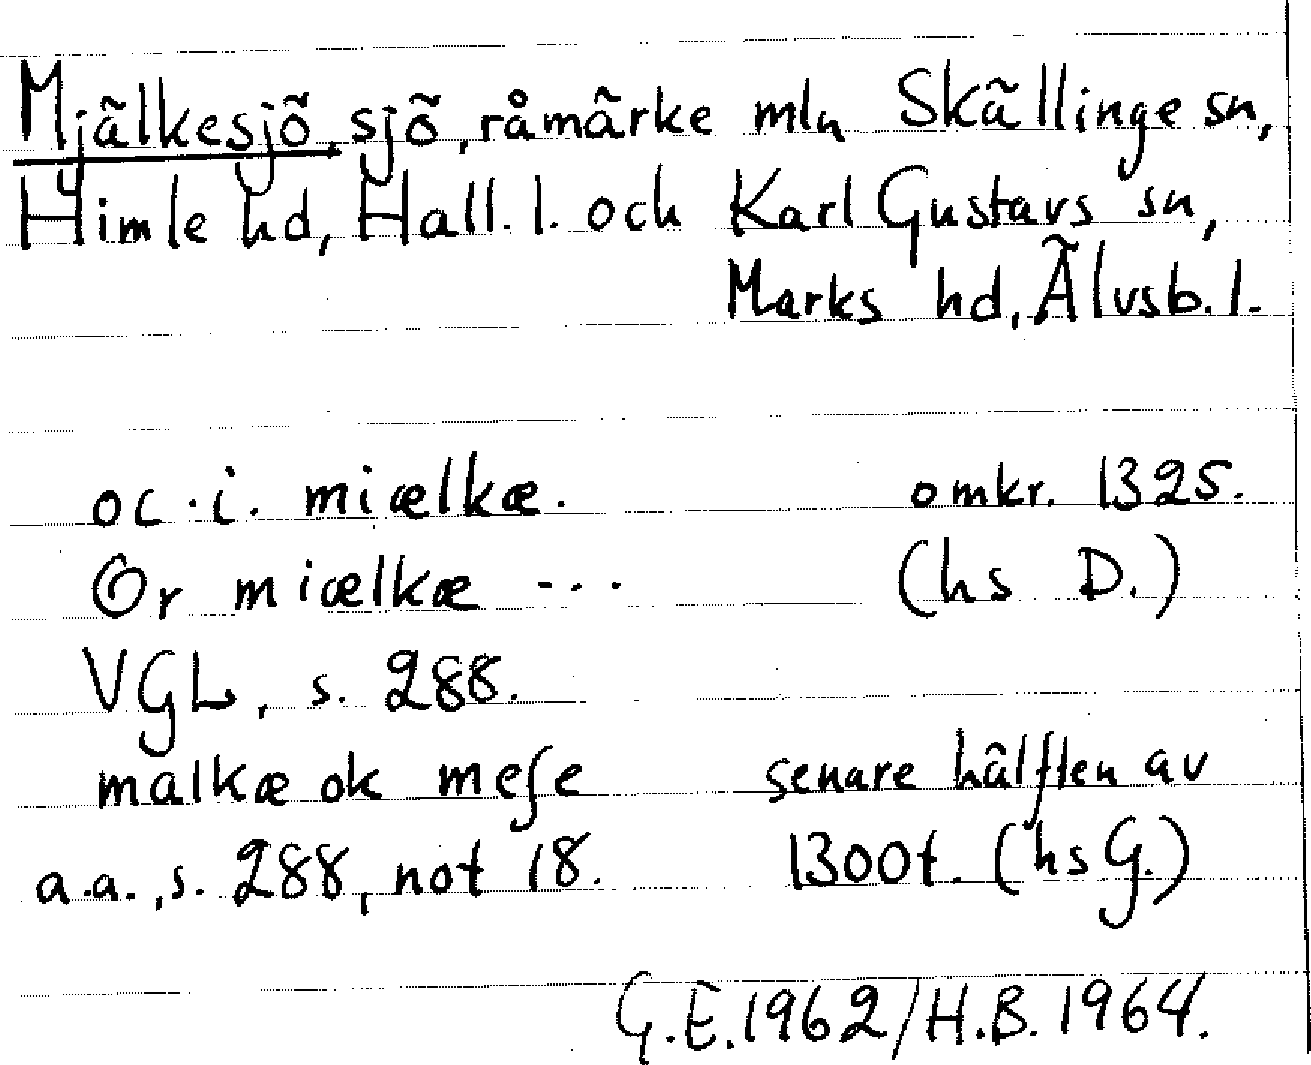 Mjälkesjö, sjö, råmärke mln Skällinge sn,
Himle hd, Hall. l. och Karl Gustavs sn,
Marks hd, Älvsb. l.
oc ·i. miælkæ. omkr. 1325.
Or miælkæ ... (hs D.)
VGL, s. 288.
malkæ ok meſe senare hälften av
a.a., s. 288, not 18. 1300t. (hs G.)
G.E. 1962/H.B. 1964.